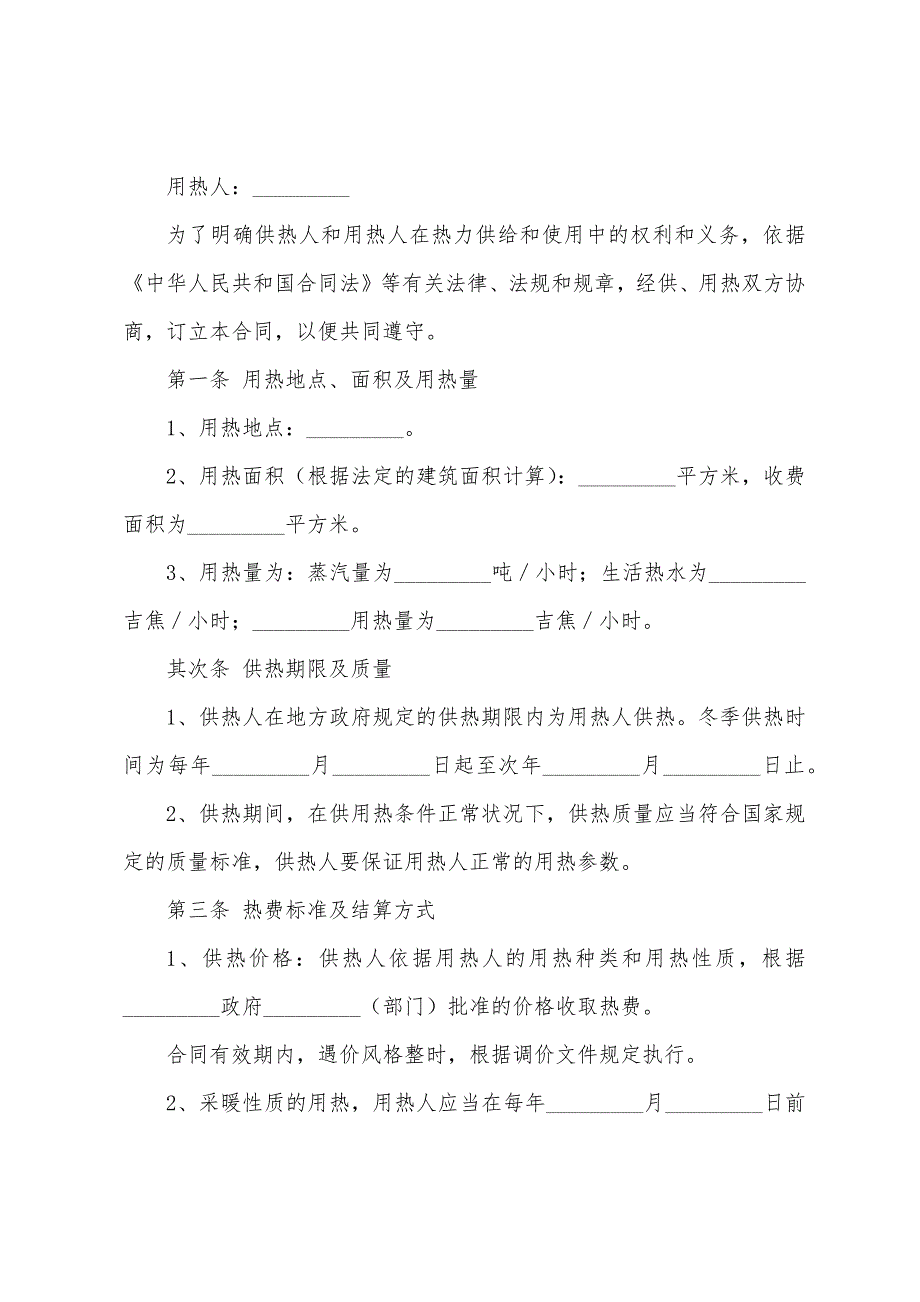 用热人：_________
为了明确供热人和用热人在热力供给和使用中的权利和义务，依据
《中华人民共和国合同法》等有关法律、法规和规章，经供、用热双方协
商，订立本合同，以便共同遵守。
第一条 用热地点、面积及用热量
1、用热地点：_________。
2、用热面积（根据法定的建筑面积计算）：_________平方米，收费
面积为_________平方米。
3、用热量为：蒸汽量为_________吨／小时；生活热水为_________
吉焦／小时；_________用热量为_________吉焦／小时。
其次条 供热期限及质量
1、供热人在地方政府规定的供热期限内为用热人供热。冬季供热时
间为每年_________月_________日起至次年_________月_________日止。
2、供热期间，在供用热条件正常状况下，供热质量应当符合国家规
定的质量标准，供热人要保证用热人正常的用热参数。
第三条 热费标准及结算方式
1、供热价格：供热人依据用热人的用热种类和用热性质，根据
_________政府_________（部门）批准的价格收取热费。
合同有效期内，遇价风格整时，根据调价文件规定执行。
2、采暖性质的用热，用热人应当在每年_________月_________日前